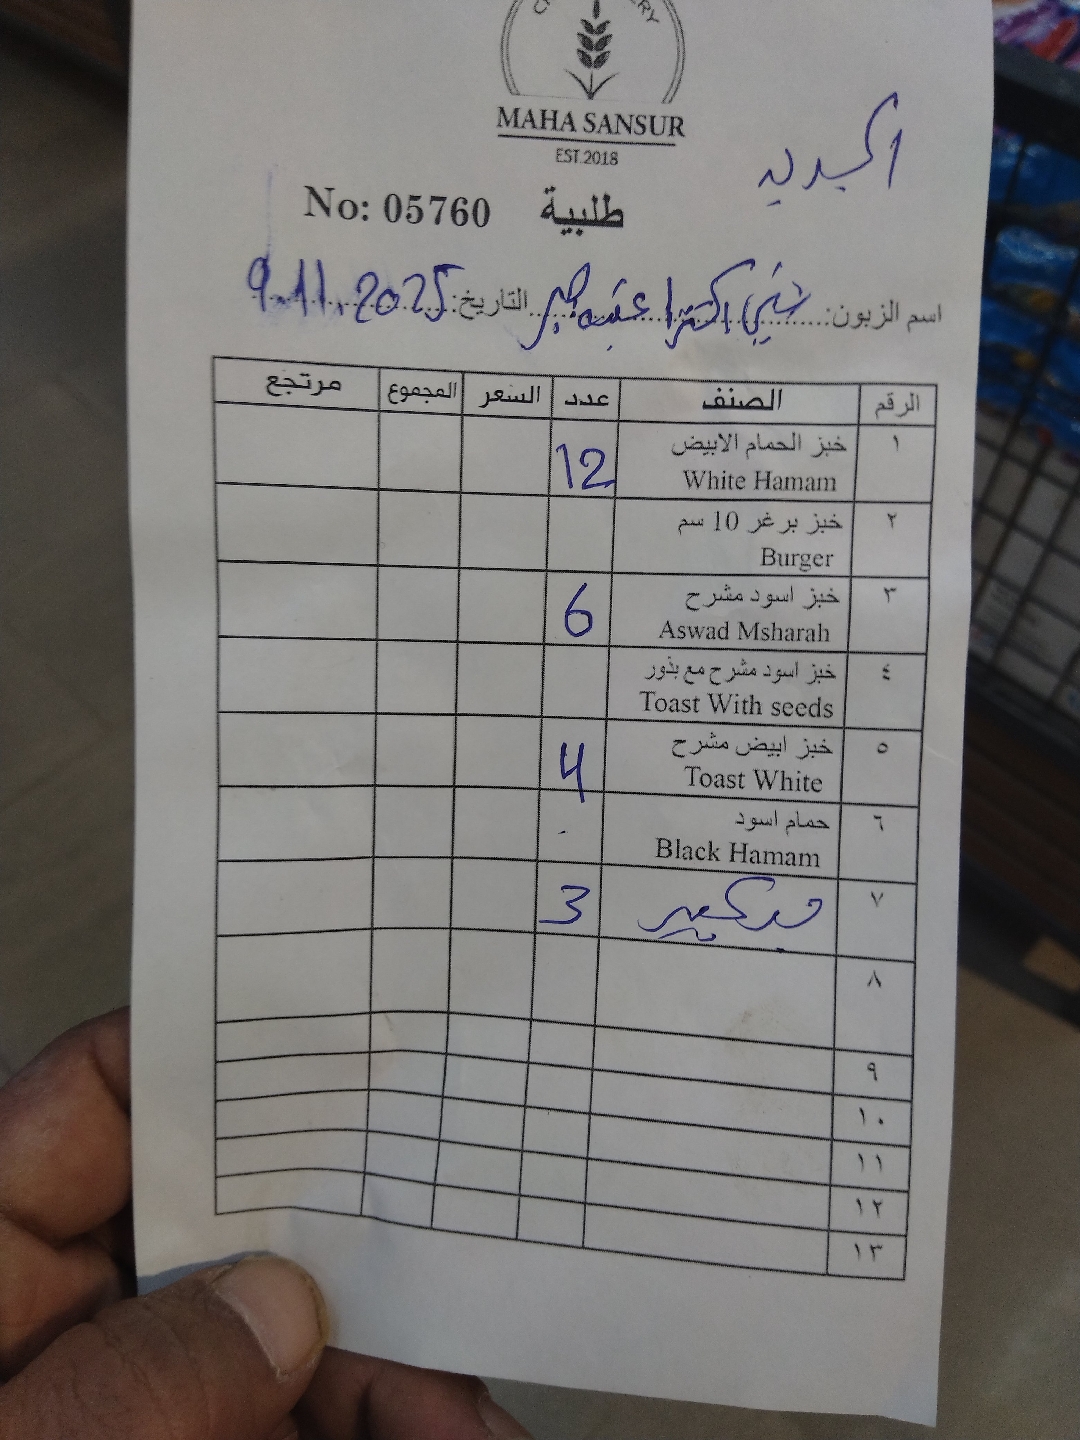 MAHA SANSUR
EST.2018
الجديد
No: 05760 طلبية
اسم الزبون: التاريخ: 9.11.2025
الرقم الصنف عدد السعر المجموع مرتجع
١ خبز الحمام الابيض 12
White Hamam
٢ خبز برغر 10 سم
Burger
٣ خبز اسود مشرح 6
Aswad Msharah
٤ خبز اسود مشرح مع بذور
Toast With seeds
٥ خبز ابيض مشرح 4
Toast White
٦ حمام اسود
Black Hamam
٧ 3
٨
٩
١٠
١١
١٢
١٣